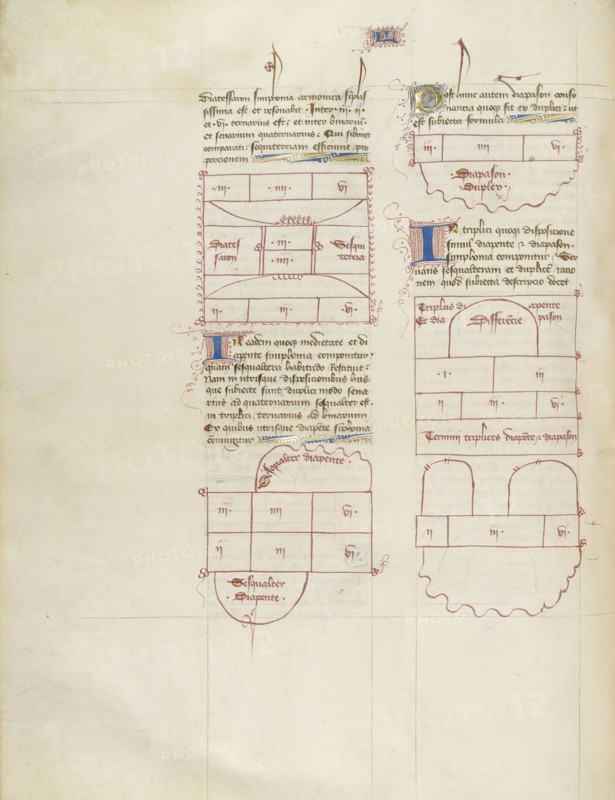 Diatessaron simphonia armonica simplissima
ssima est et resonabit. Inter. iii. ii.
et. vi. ternarius est: et inter binarium.
et senarium quaternarius: Qui sibimet
comparati: sesquiterciam efficiunt pro
porcionem
.iii. .iiii. vi
Diates
saron
.iiii.
.iii.
Sesqui
tercia
ii. iii. .vi.
In eadem quoque medietate et di
apente simphonia componitur.
quam sesqualtera habitudo restituit:
Nam in utrisque disposicionibus hiis
que subiecte sunt, duplici modo sena
rius ad quaternarium sesqualter est.
in triplici ternarius ad binarium
Ex quibus utrisque diapente simphonia
coniungitur
Sesqualter diapente.
iii. iiii. vi.
ii iii vi.
Sesqualter
Diapente.
Post hunc autem diapason conso
nancia quoque fit ex duplici: ut
est subiecta formula
iii. iiii vi.
Diapason.
Duplex.
In triplici quoque disposicione
simul diapente et diapason.
simphonia componitur
sesqualteram et duplicem racio
nem quod subiecta descripcio docet
Triplus di apente
Et dia pason
Differencie
.i. iii
ii iii. vi.
Termini triplices diapente et diapason
ii iii. vi.